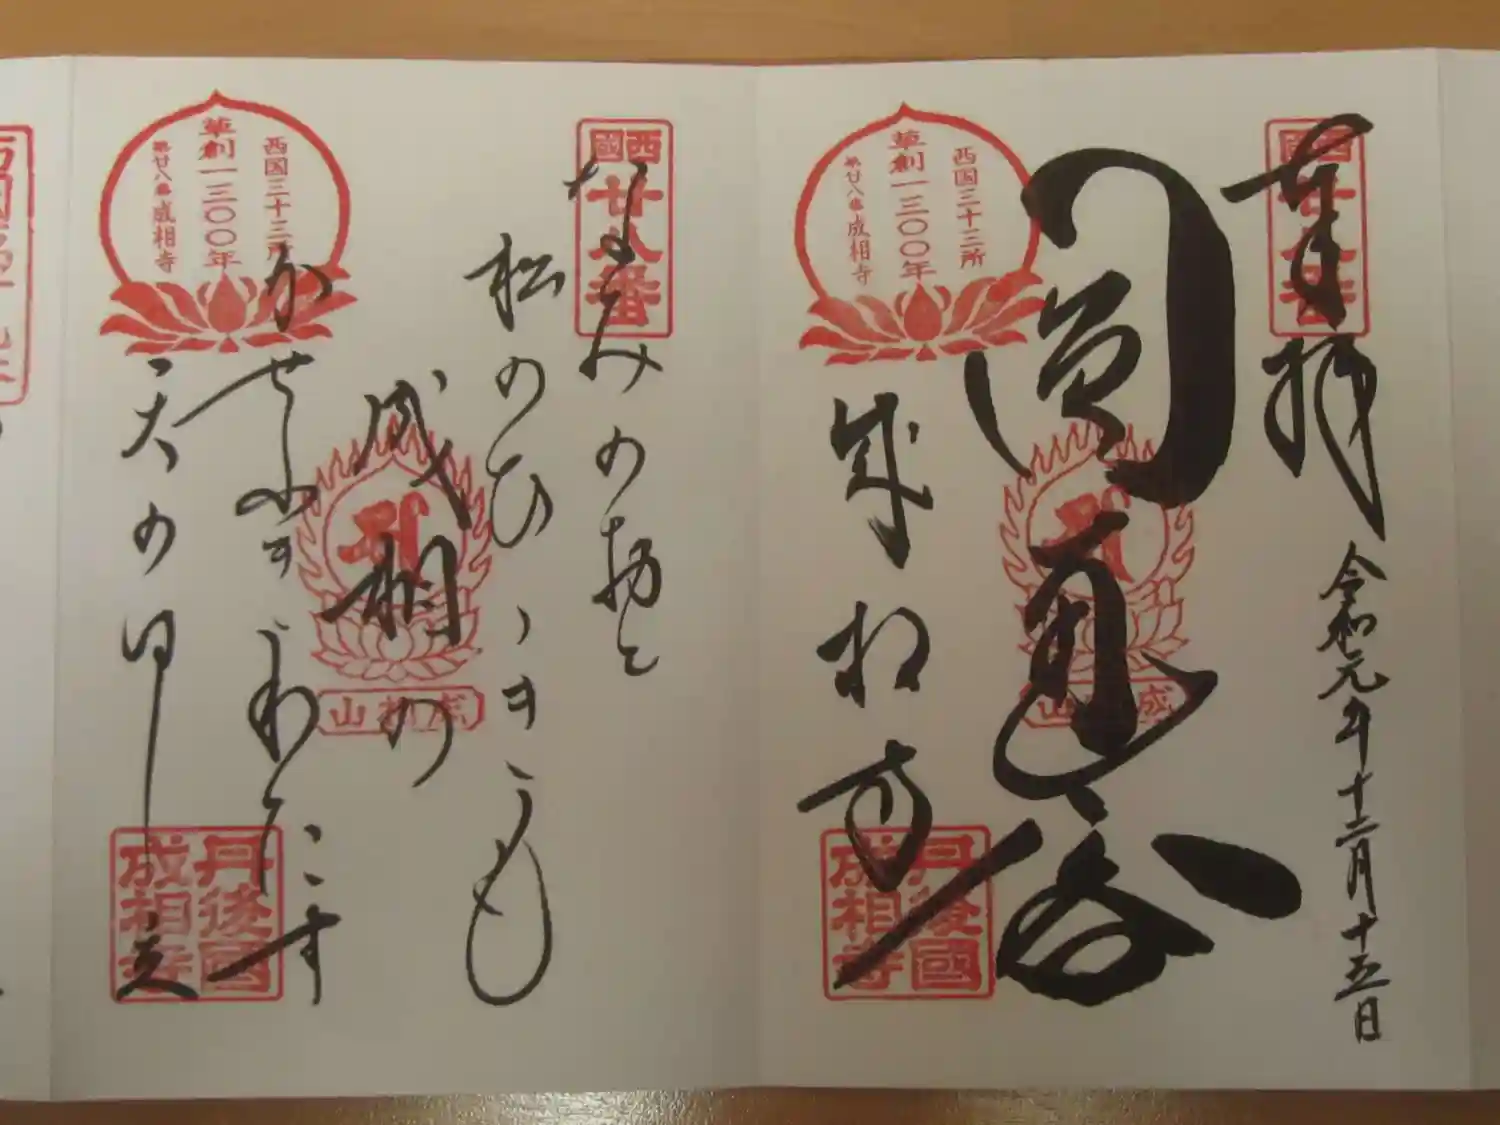 奉拝
令和元年十二月十五日
西國
廿八番
圓通閣
成相寺
西国三十三所
草創一三〇〇年
第廿八番成相寺
成相山
丹後國
成相寺
西國
廿八番
なみのおと
松のひゝきも
成相の
かせふきわたす
天のはし立
西国三十三所
草創一三〇〇年
第廿八番成相寺
成相山
丹後國
成相寺